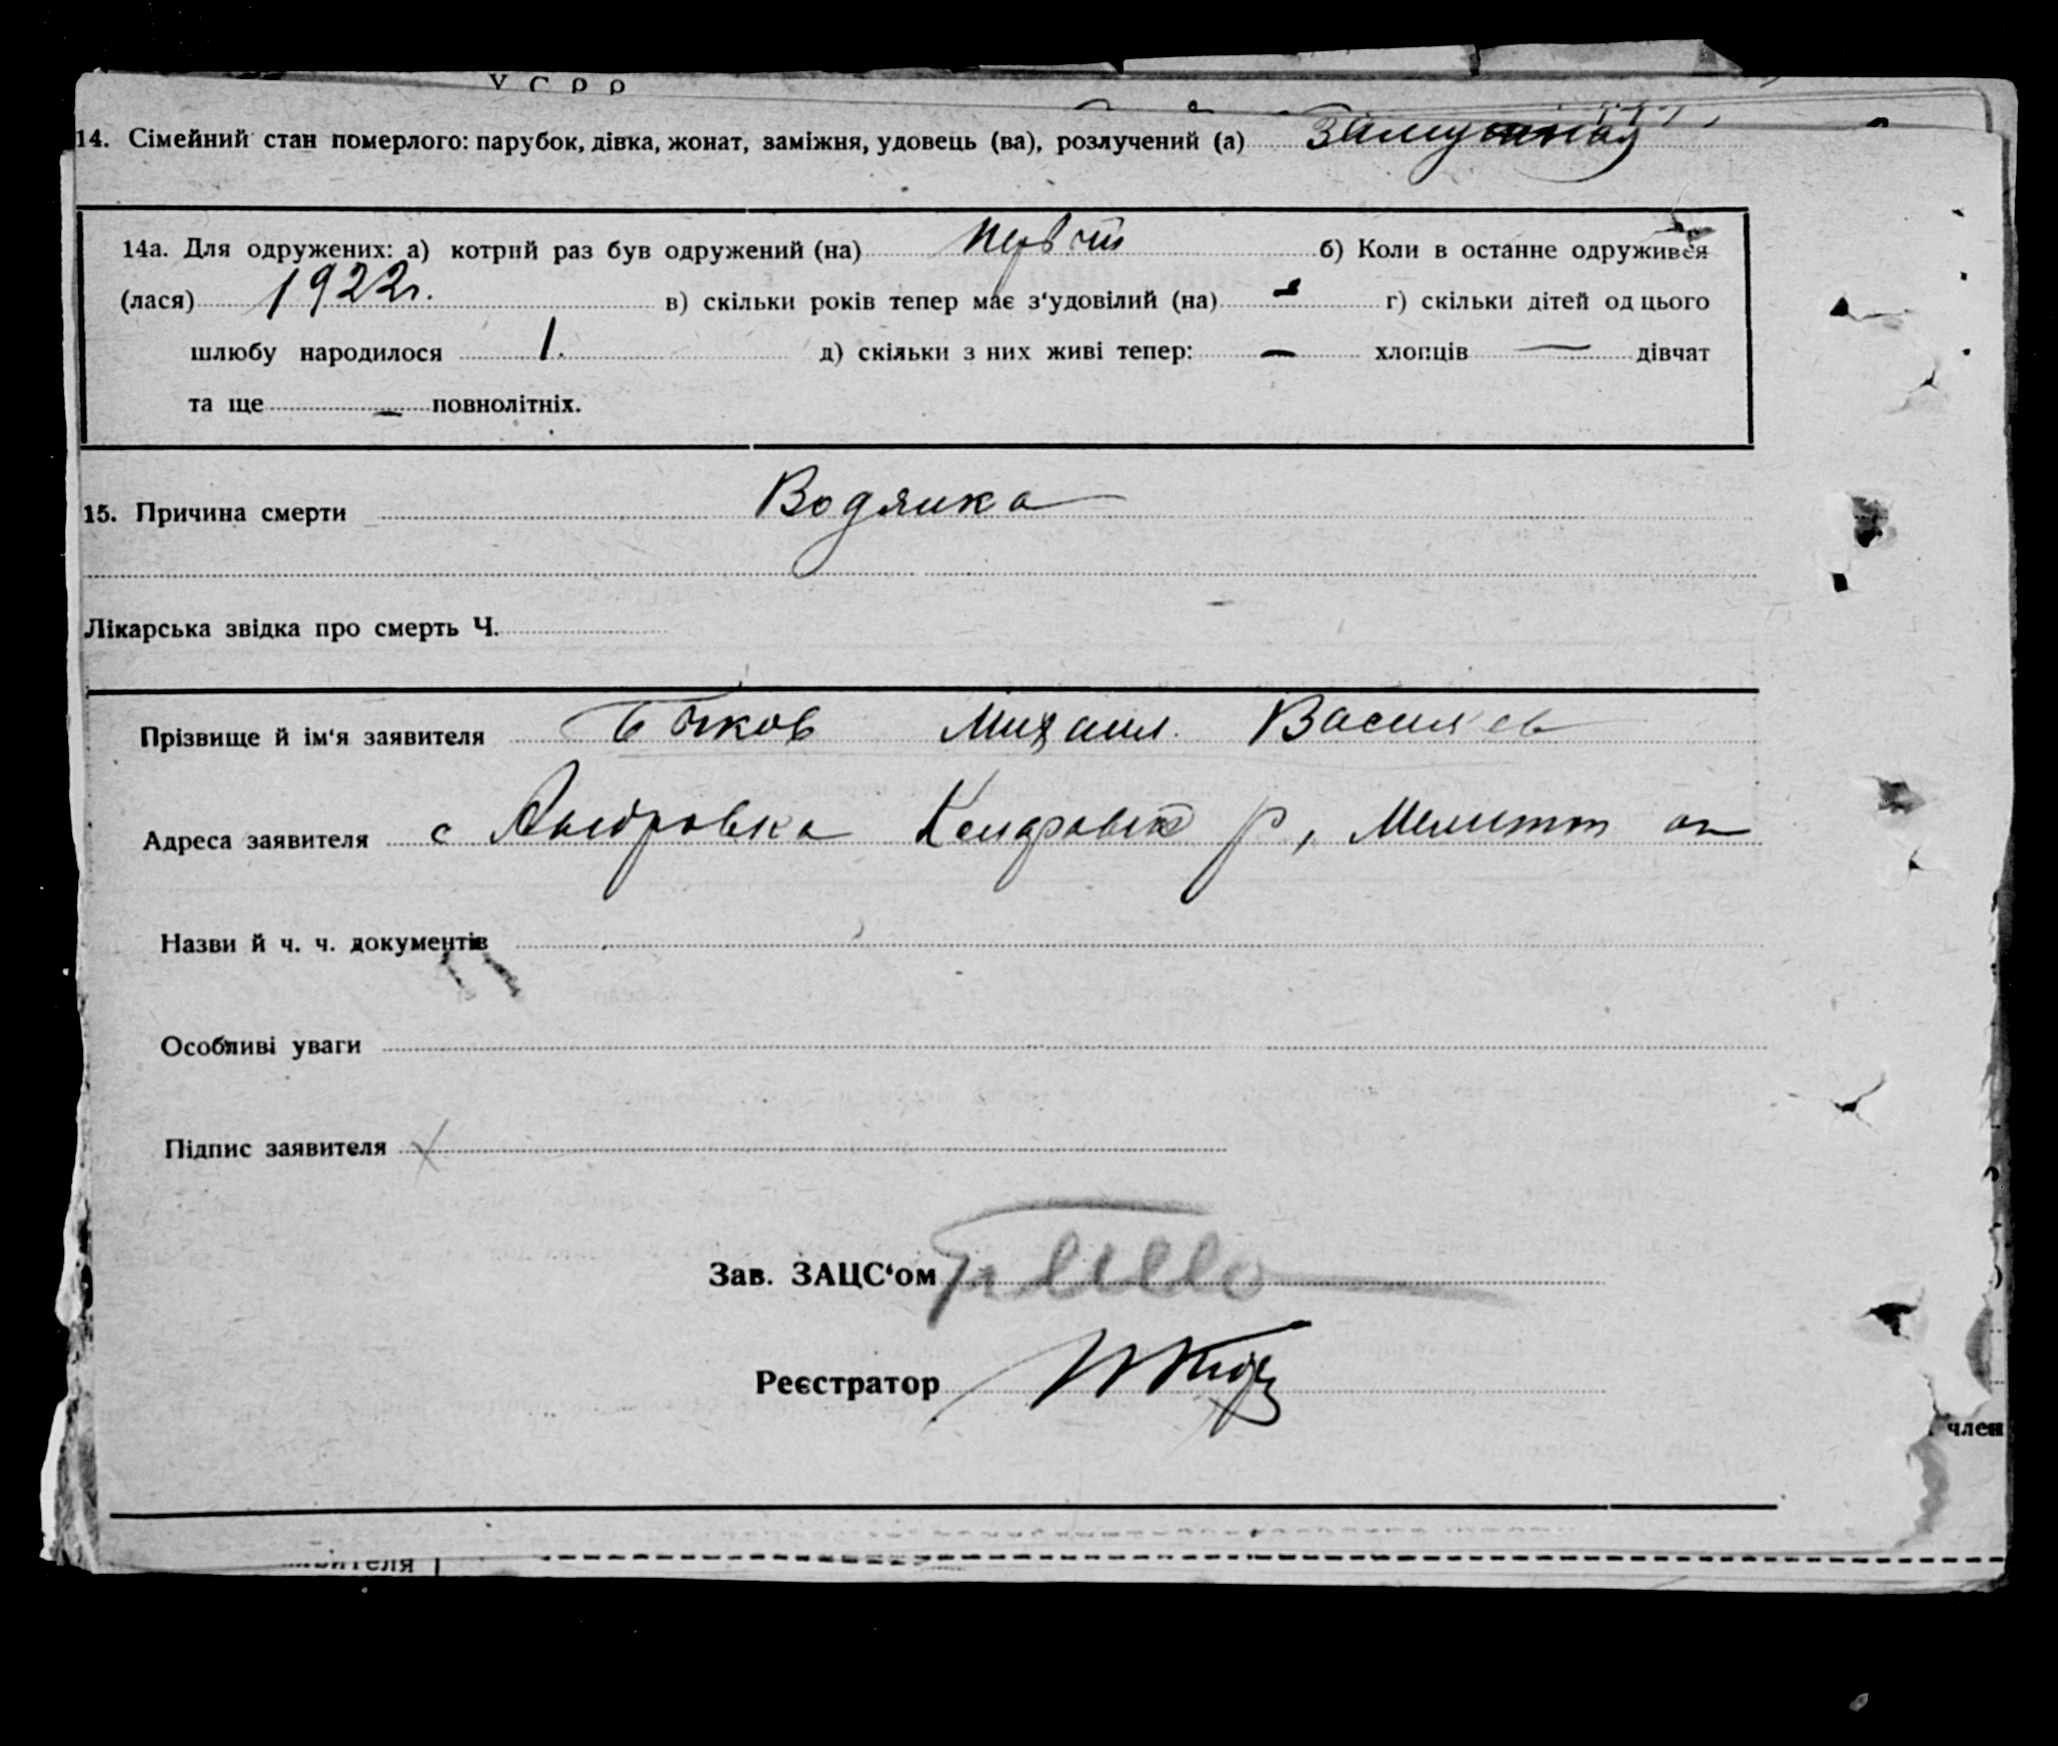 У С Р Р
14. Сімейний стан померлого: парубок, дівка, жонат, заміжня, удовець (ва), розлучений (а) Замужная
14а. Для одружених: а) котрий раз був одружений (на) первый б) Коли в останне одружився
(лася) 1922г. в) скільки років тепер має з‘удовілий (на) - г) скільки дітей од цього
шлюбу народилося 1. д) скільки з них живі тепер: - хлопців — дівчат
та ще - повнолітніх.
15. Причина смерти Водянка
Лікарська звідка про смерть Ч.
Прізвище й ім‘я заявителя Быков Михаил Васильев
Адреса заявителя с р, Мелитт ок
Назви й ч. ч. документів
Особливі уваги
Підпис заявителя х
Зав. ЗАЦС‘ом
Реєстратор
член
вителя